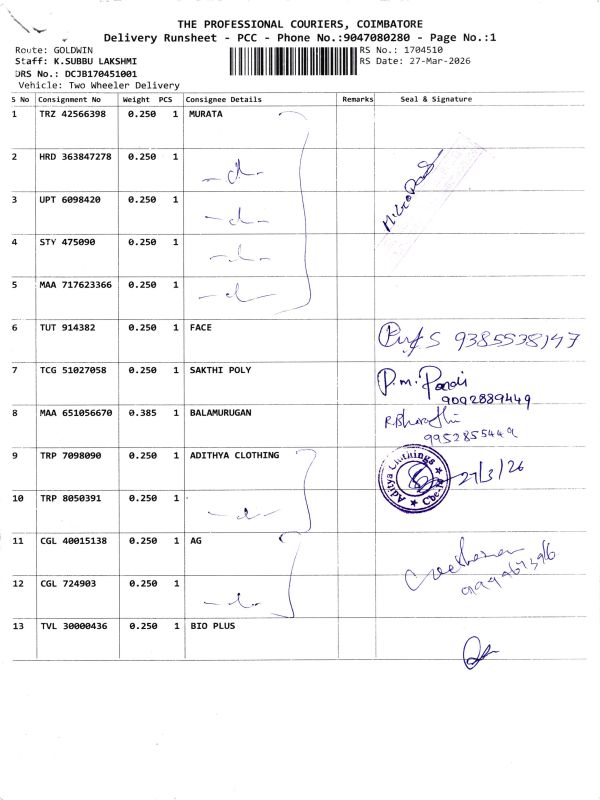 THE PROFESSIONAL COURIERS, COIMBATORE
Delivery Runsheet - PCC - Phone No.:9047080280 - Page No.:1
Route: GOLDWIN
Staff: K.SUBBU LAKSHMI
DRS No.: DCJB170451001
Vehicle: Two Wheeler Delivery
RS No.: 1704510
RS Date: 27-Mar-2026
S No Consignment No Weight PCS Consignee Details Remarks Seal & Signature
1 TRZ 42566398 0.250 1 MURATA
2 HRD 363847278 0.250 1 -d-
3 UPT 6098420 0.250 1 -d-
4 STY 475090 0.250 1 -d-
5 MAA 717623366 0.250 1 -d-
6 TUT 914382 0.250 1 FACE 9385538147
7 TCG 51027058 0.250 1 SAKTHI POLY P.m. Pandi
9092889449
8 MAA 651056670 0.385 1 BALAMURUGAN R.Bharathi
9952855449
9 TRP 7098090 0.250 1 ADITHYA CLOTHING Aditya Clothings 27/3/26
10 TRP 8050391 0.250 1 -d-
11 CGL 40015138 0.250 1 AG
12 CGL 724903 0.250 1 -d-
13 TVL 30000436 0.250 1 BIO PLUS